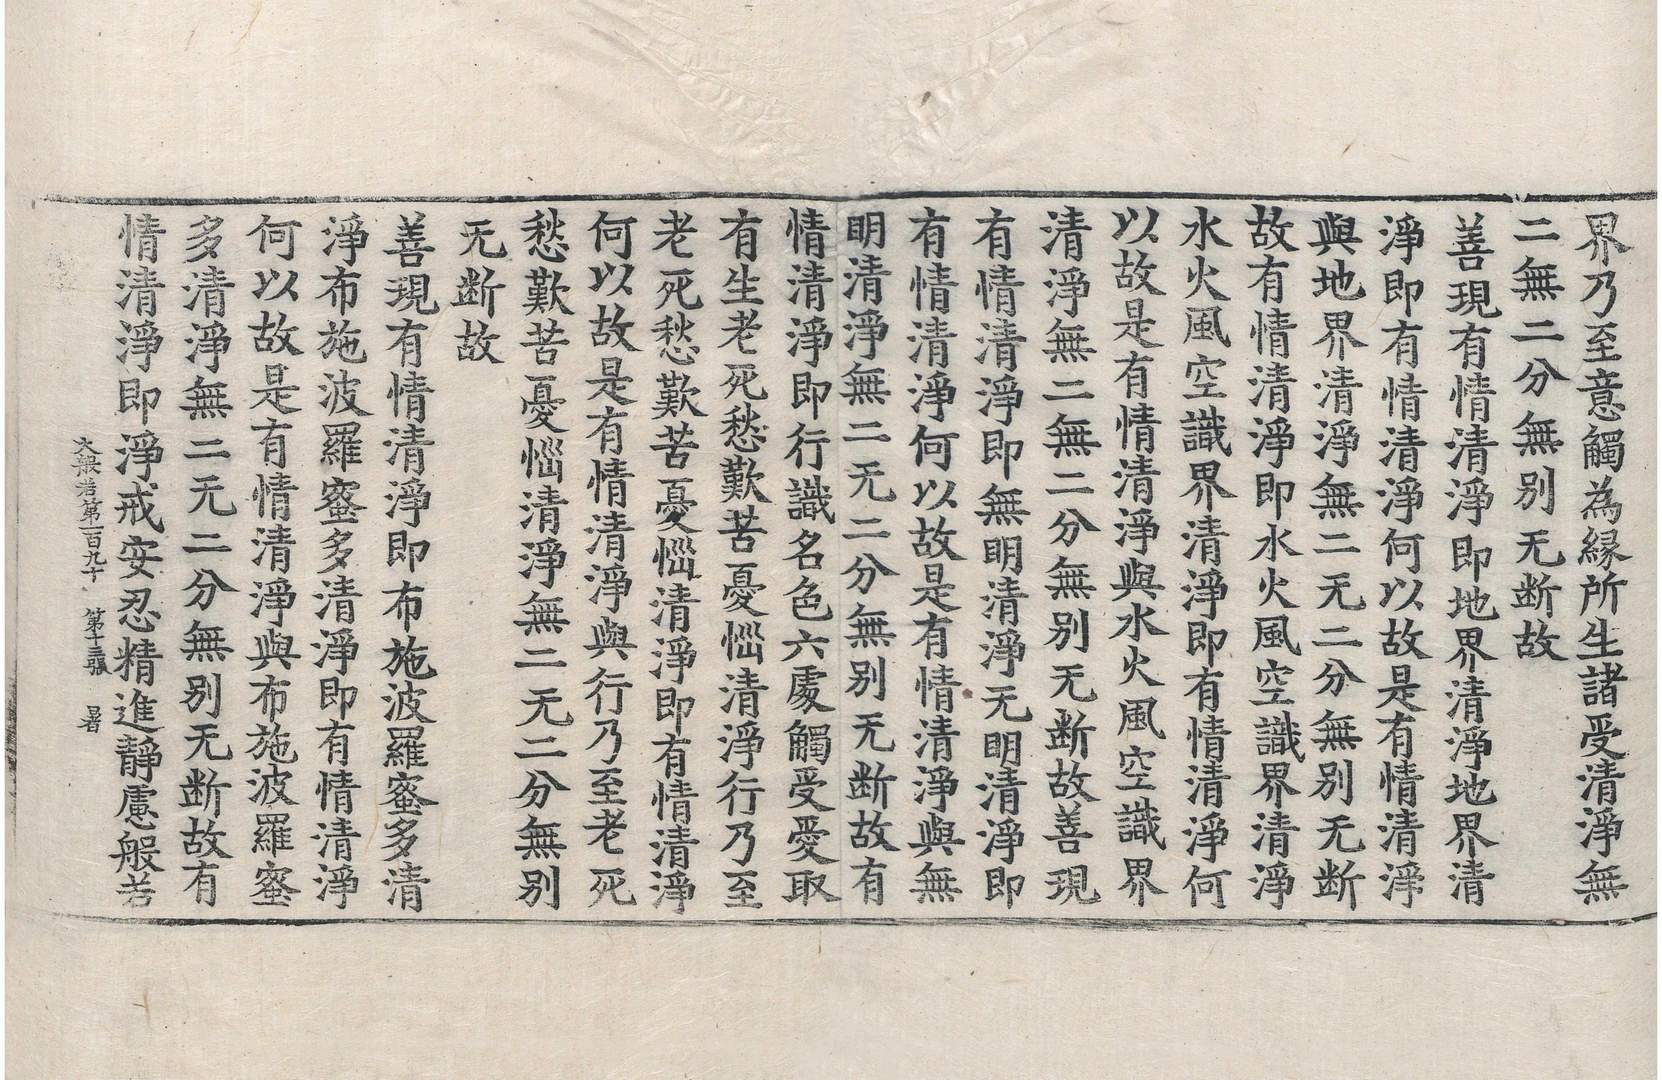 界乃至意觸為緣所生諸受清淨無
二無二分無别无断故
善現有情清淨即地界清淨地界清
淨即有情清淨何以故是有情清淨
與地界清淨無二无二分無别无断
故有情清淨即水火風空識界清淨
水火風空識界清淨即有情清淨何
以故是有情清淨與水火風空識界
清淨無二無二分無别无断故善現
有情清淨即無明清淨无明清淨即
有情清淨何以故是有情清淨與無
明清淨無二无二分無别无断故有
情清淨即行識名色六處觸受愛取
有生老死愁歎苦憂惱清淨行乃至
老死愁歎苦憂惱清淨即有情清淨
何以故是有情清淨與行乃至老死
愁歎苦憂惱清淨無二无二分無别
无断故
善現有情清淨即布施波羅蜜多清
淨布施波羅蜜多清淨即有情清淨
何以故是有情清淨與布施波羅蜜
多清淨無二无二分無别无断故有
情清淨即淨戒安忍精進靜慮般若
大般若第一百九十 第十三張 暑